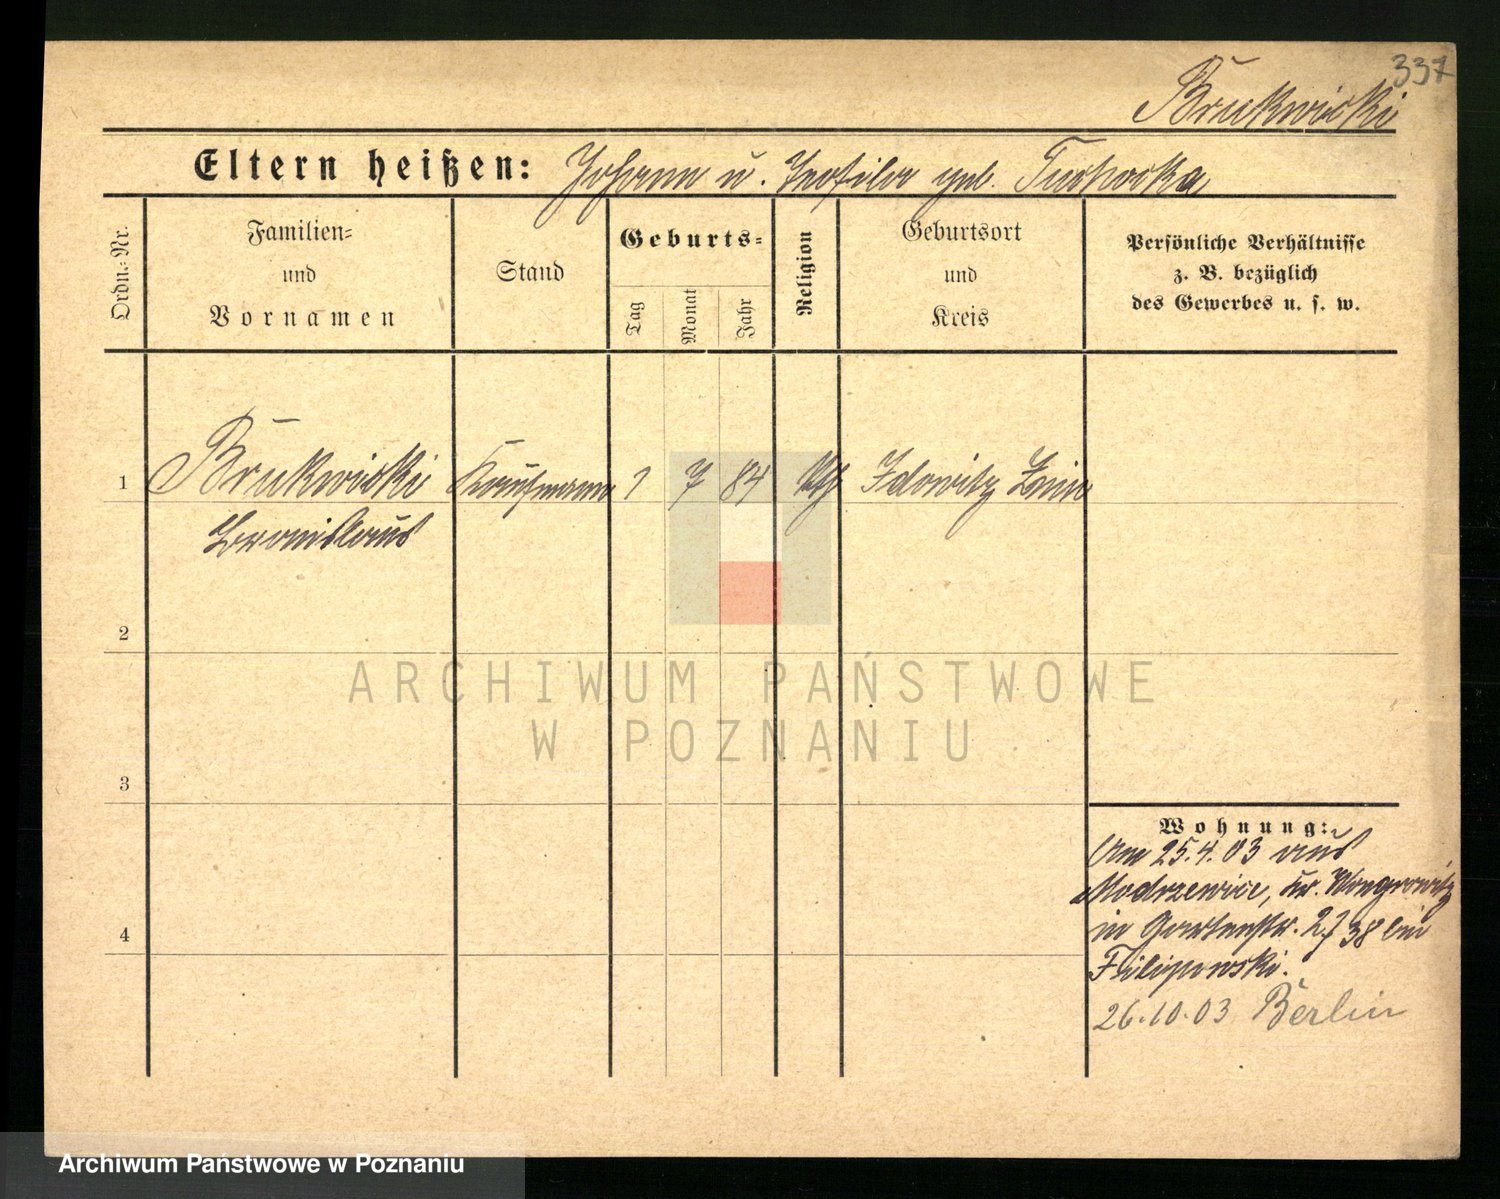 337
Brukwicki
Eltern heißen: Johann u. Teofila geb.
Ordn.-Nr.
Familien-
und
Vornamen
Stand
Geburts-
Tag
Monat
Jahr
Religion
Geburtsort
und
Kreis
Persönliche Verhältnisse
z. B. bezüglich
des Gewerbes u. s. w.
1 Brukwicki Kaufmann 1 7 84 kth Znin
Bronislaus
2
3
4
ARCHIWUM PAŃSTWOWE
W POZNANIU
Wohnung:
Am 25.4.03 aus
Modrzewice, Kr. Wongrowitz
in Gartenstr. 2 bei
Filipowski.
26.10.03 Berlin
Archiwum Państwowe w Poznaniu